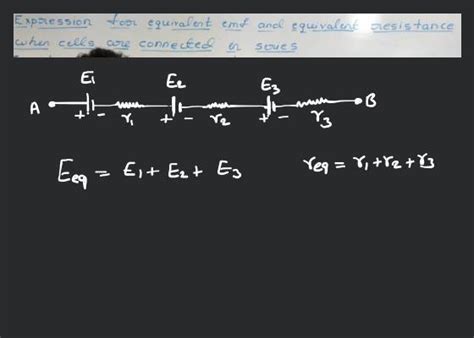 Expression for equivalent emf and equivalent resistance
when cells are connected in series
E₁ E₂ E₃
A + - r₁ + - r₂ + - r₃ B
E_eq = E₁ + E₂ + E₃
r_eq = r₁ + r₂ + r₃